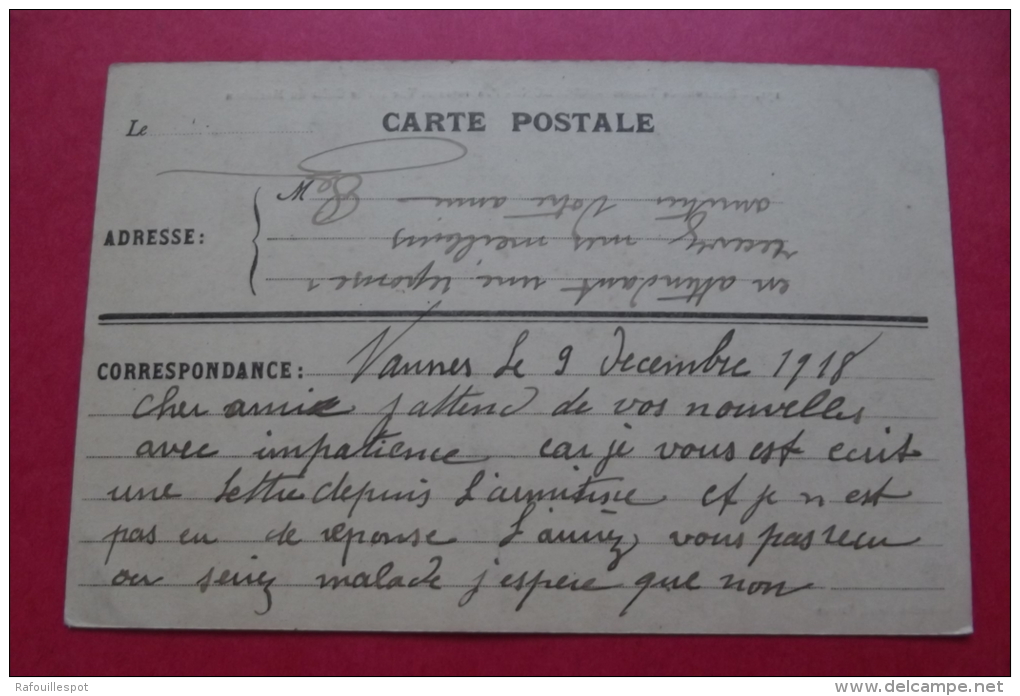 CARTE POSTALE
Le
M
ADRESSE:
CORRESPONDANCE:
Vannes le 9 decembre 1918
cher amie j attend de vos nouvelles
avec impatience car je vous est ecrit
une lettre depuis l'armitice et je n est
pas eu de reponse l'auriez vous pas recu
ou seriez malade j'espere que non
en attendant une reponse
recevez mes meilleurs
amitiés votre amie
Rafouillespot
www.delcampe.net